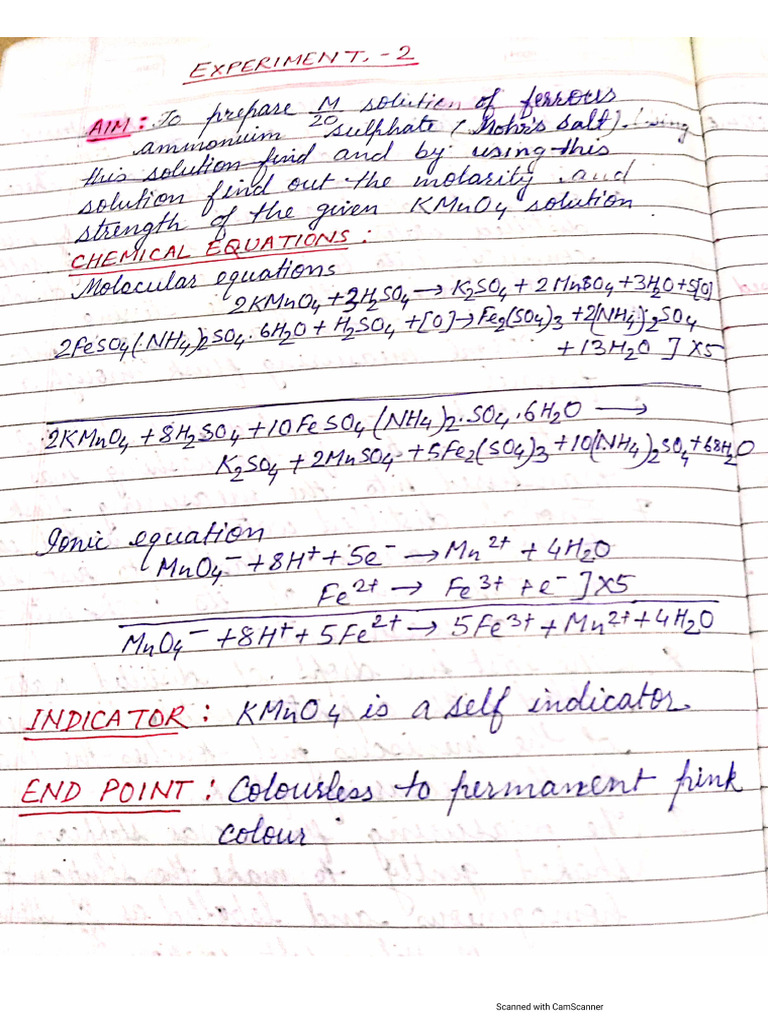 EXPERIMENT. -2
AIM: To prepare M/20 solution of ferrous
ammonium sulphate (Mohr's salt). Using
this solution find and by using this
solution find out the molarity and
strength of the given KMnO4 solution
CHEMICAL EQUATIONS:
Molacular equations
2KMnO4 + 3H2SO4 → K2SO4 + 2MnSO4 + 3H2O + 5[O]
2FeSO4(NH4)2SO4.6H2O + H2SO4 + [O] → Fe2(SO4)3 + 2(NH4)2SO4
+ 13H2O ] X5
2KMnO4 + 8H2SO4 + 10FeSO4(NH4)2.SO4.6H2O →
K2SO4 + 2MnSO4 + 5Fe2(SO4)3 + 10(NH4)2SO4 + 68H2O
Ionic equation
MnO4- + 8H+ + 5e- → Mn2+ + 4H2O
Fe2+ → Fe3+ + e- ] X5
MnO4- + 8H+ + 5Fe2+ → 5Fe3+ + Mn2+ + 4H2O
INDICATOR: KMnO4 is a self indicator.
END POINT: Colourless to permanent pink
colour
Scanned with CamScanner